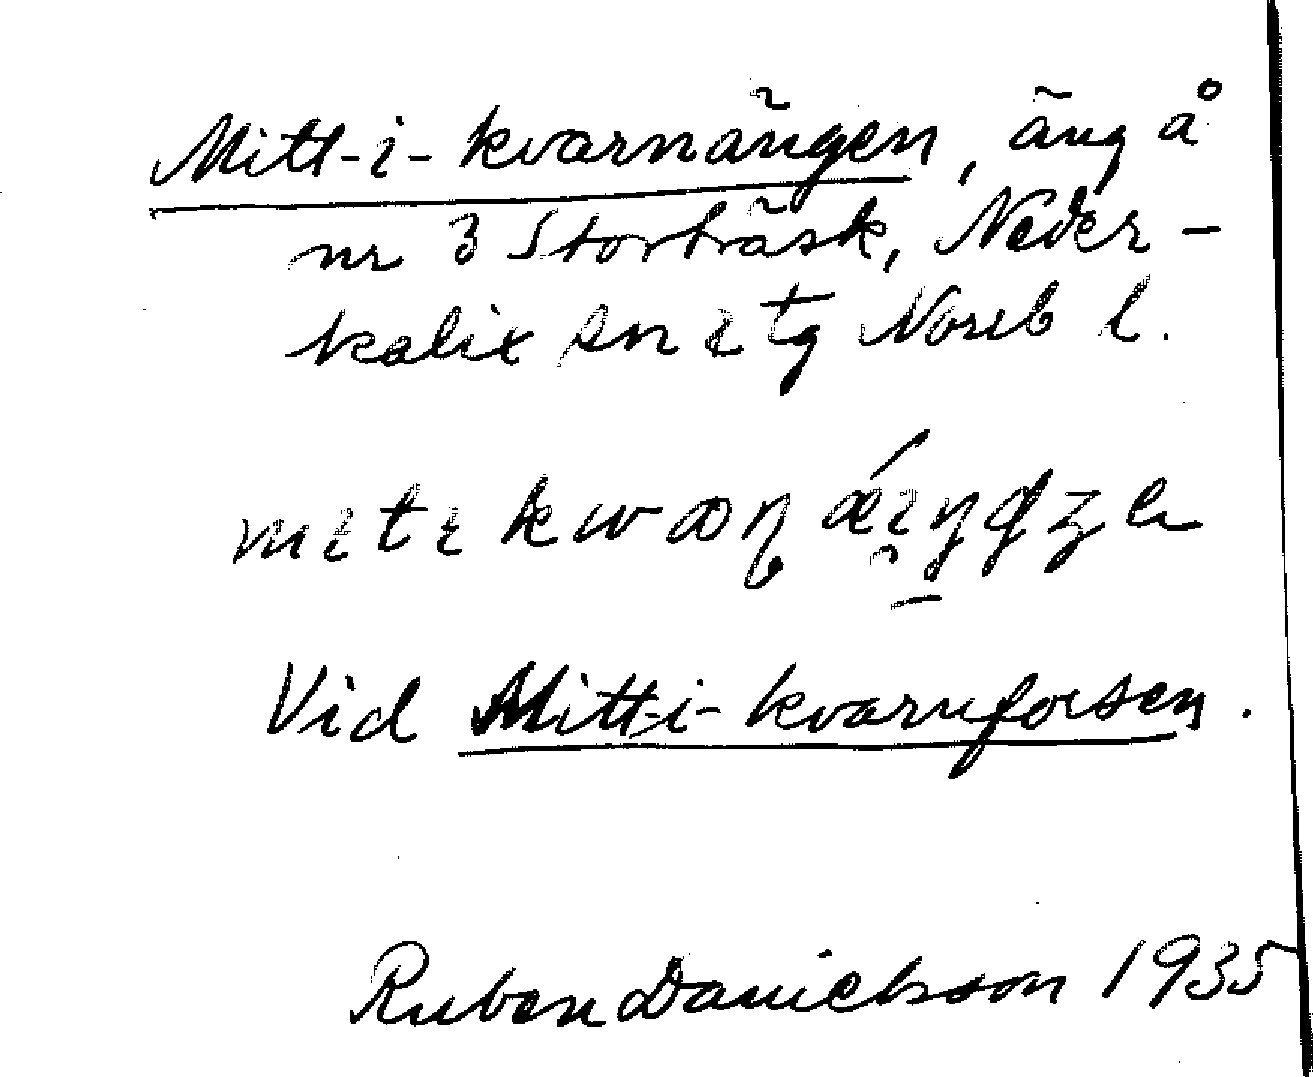 Mitt-i-kvarnängen, äng å
nr 3 Storträsk, Neder-
kalix sn o tg Norrb l.
Vid Mitt-i-kvarnforsen.
Ruben Danielsson 1935